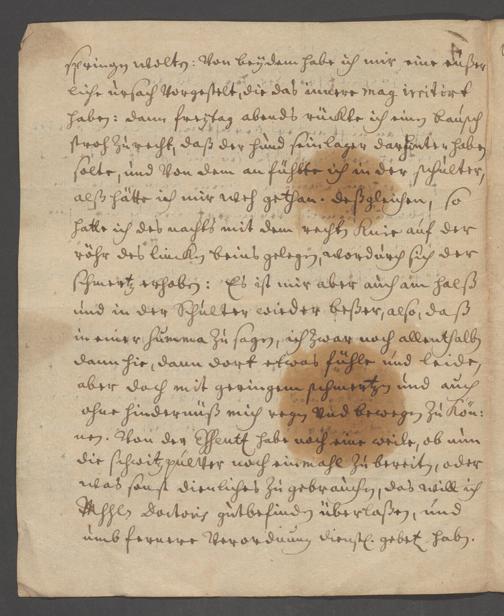 springen wolten: Von beydem habe ich mir eine eüßer
liche ursach vorgestelt, die das innere mag irritirt
haben: dann freytag abends rückte ich einen bausch
stroh zu recht, daß der hund sein lager darunter haben
solte, und von dem an fühlte ich in der schulter,
alß hätte ich mir weh gethan. deßgleichen, so
hatte ich des nachts mit dem rechten Knie auf der
röhr des lincken beins gelegen, wordurch sich der
schmertz erhoben: Es ist mir aber auch am halß
und in der Schulter wieder beßer, also, daß
in einer summa zu sagen, ich zwar noch allenthalben
dann hie, dann dort etwas fühle und leide,
aber doch mit geringem schmertzen und auch
ohne hindernüß mich regen und bewegen zu Kön:
nen. Von der Essentz habe noch eine weile, ob nun
die schwitzpulver noch einmahl zu bereiten, oder
was sonst dienliches zu gebrauchen, das will ich
Doctoris gutbefinden überlaßen, und
umb fernere Verordnung dienstl. gebeten haben.